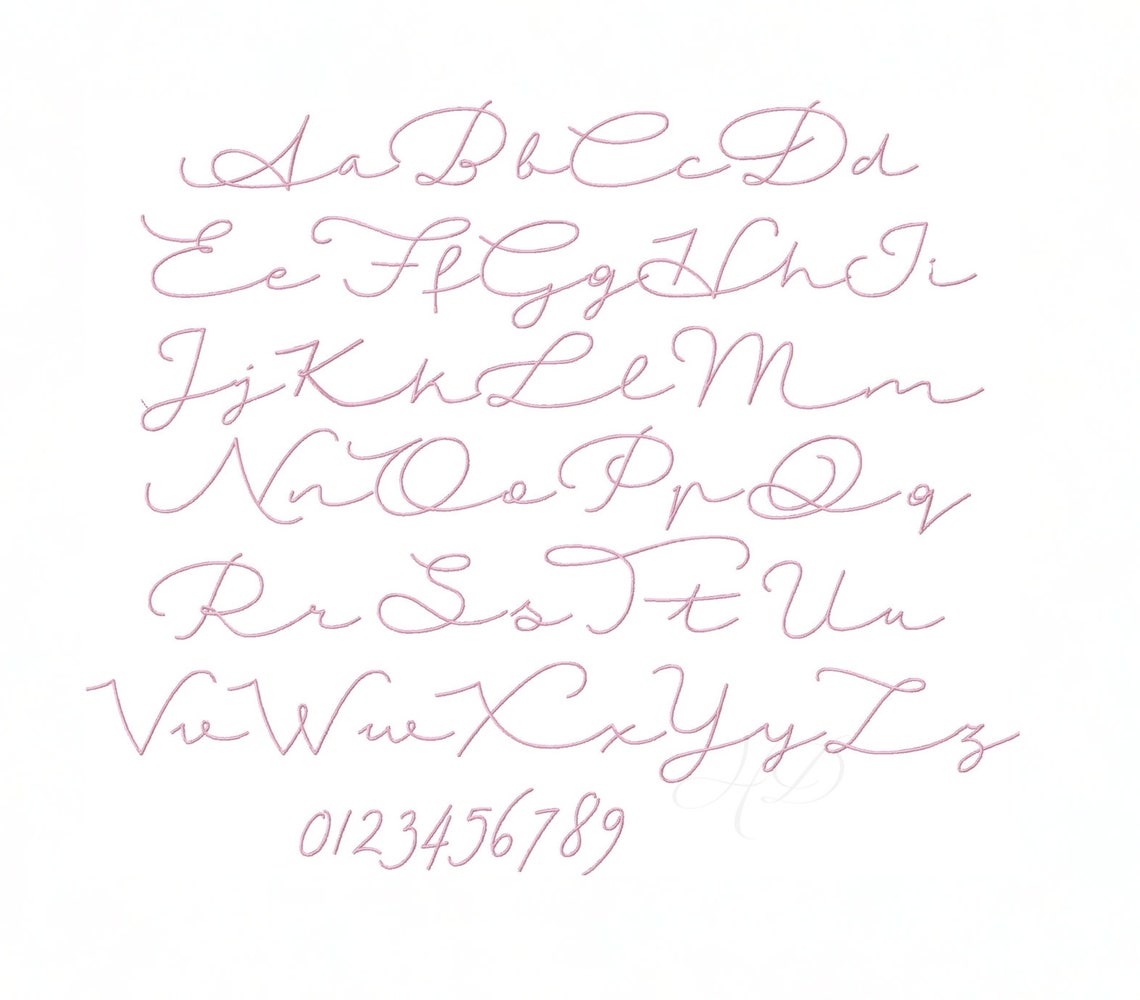 Aa Bb Cc Dd
Ee Ff Gg Hh Ii
Jj Kk Ll Mm
Nn Oo Pp Qq
Rr Ss Tt Uu
Vv Ww Xx Yy Zz
HD
0123456789